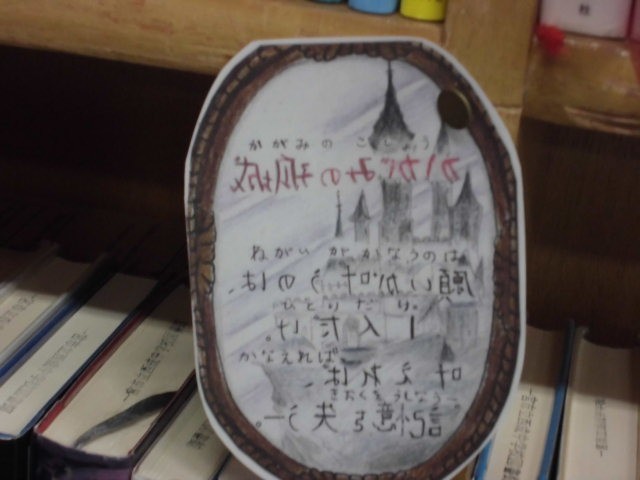 かがみの こじょう
かがみの孤城
ねがい が かなうのは
願いが叶うのは、
ひとりだけ。
一人だけ。
かなえれば
叶えれば、
きおくをうしなう―
記憶を失う―。